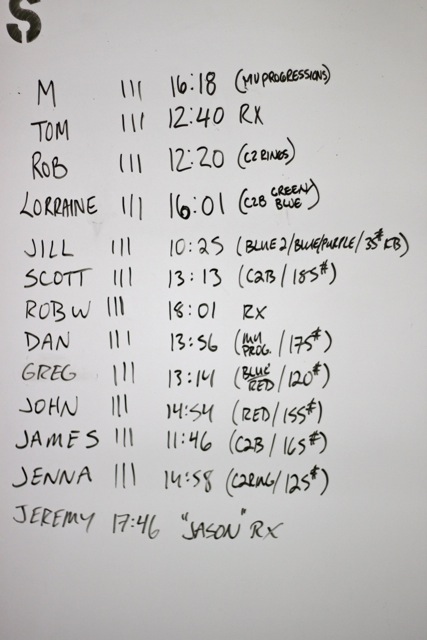 S
M ||| 16:18 (MU PROGRESSIONS)
TOM ||| 12:40 RX
ROB ||| 12:20 (C2 RINGS)
LORRAINE ||| 16:01 (C2B GREEN/BLUE)
JILL ||| 10:25 (BLUE 2/BLUE/PURPLE/35# KB)
SCOTT ||| 13:13 (C2B/185#)
ROB W ||| 18:01 RX
DAN ||| 13:56 (MU PROG./175#)
GREG ||| 13:14 (BLUE/RED/120#)
JOHN ||| 14:54 (RED/155#)
JAMES ||| 11:46 (C2B/165#)
JENNA ||| 14:58 (C2RING/125#)
JEREMY 17:46 "JASON" RX